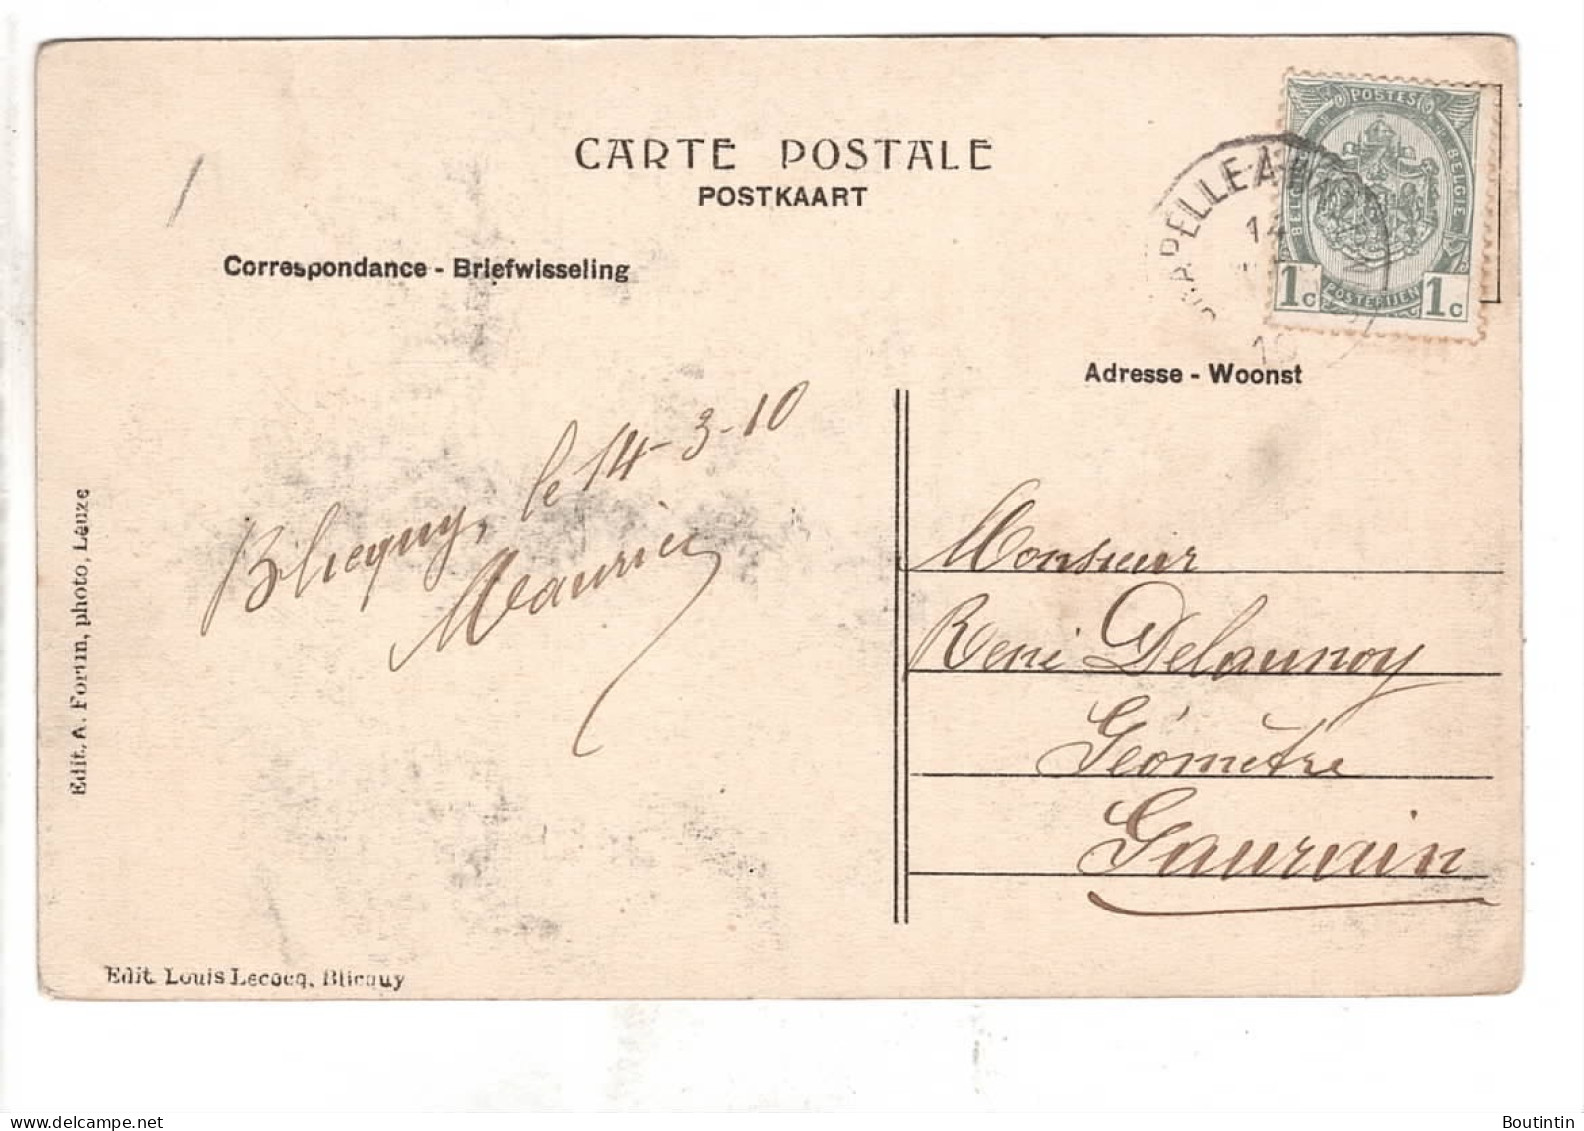 CARTE POSTALE
POSTKAART
Correspondance - Briefwisseling
POSTES
BELGIQUE
BELGIE
POSTERIJEN
1c
1c
14
10
Adresse - Woonst
Blicquy, le 14-3-10
Maurice
Monsieur
René Delaunoy
Géomètre
Gaurain
Edit. A. Fortin, photo, Leuze
Edit. Louis Lecocq, Blicquy
delcampe.net
Boutintin